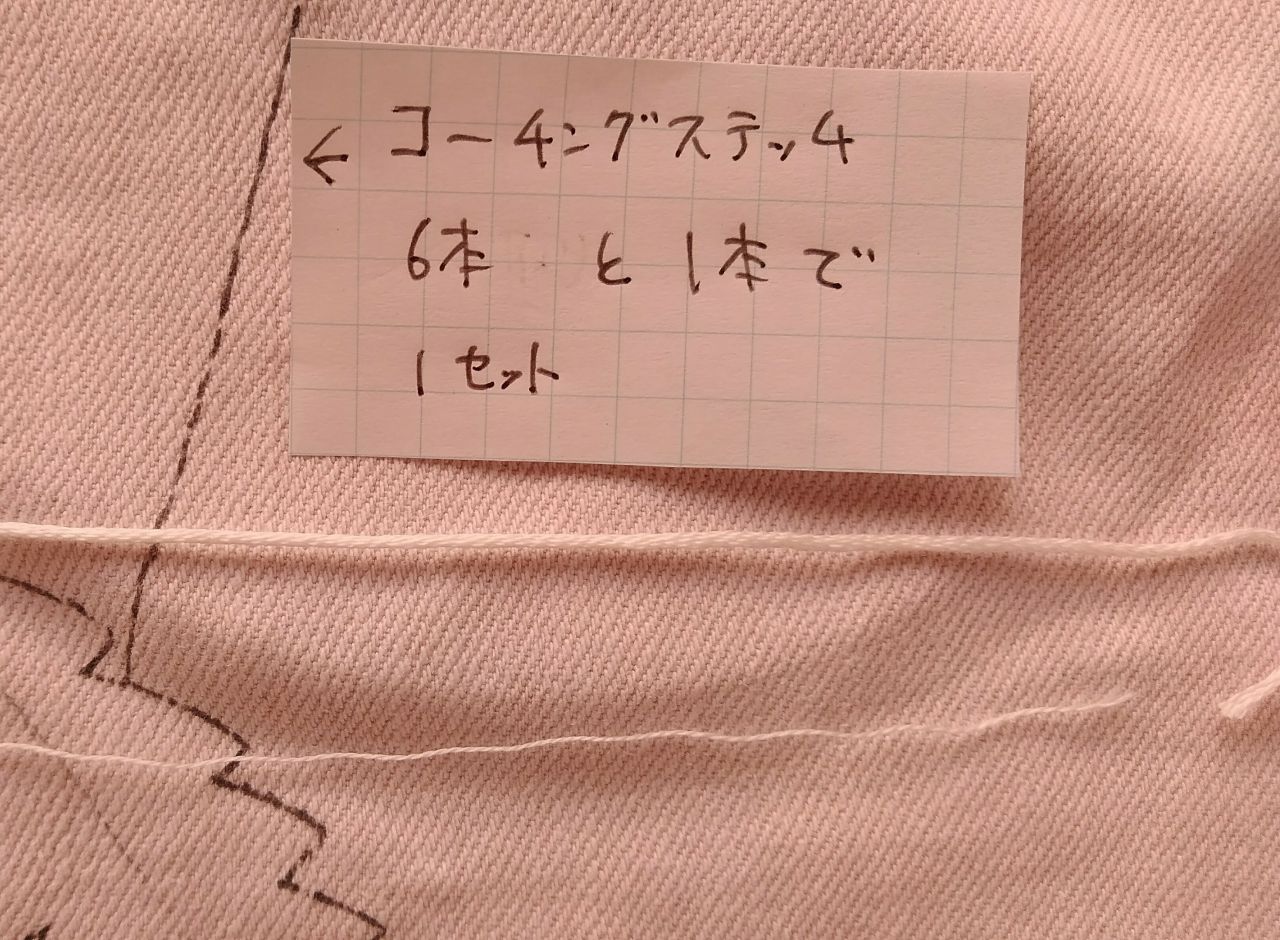 ← コーチングステッチ
6本 と 1本で
1セット